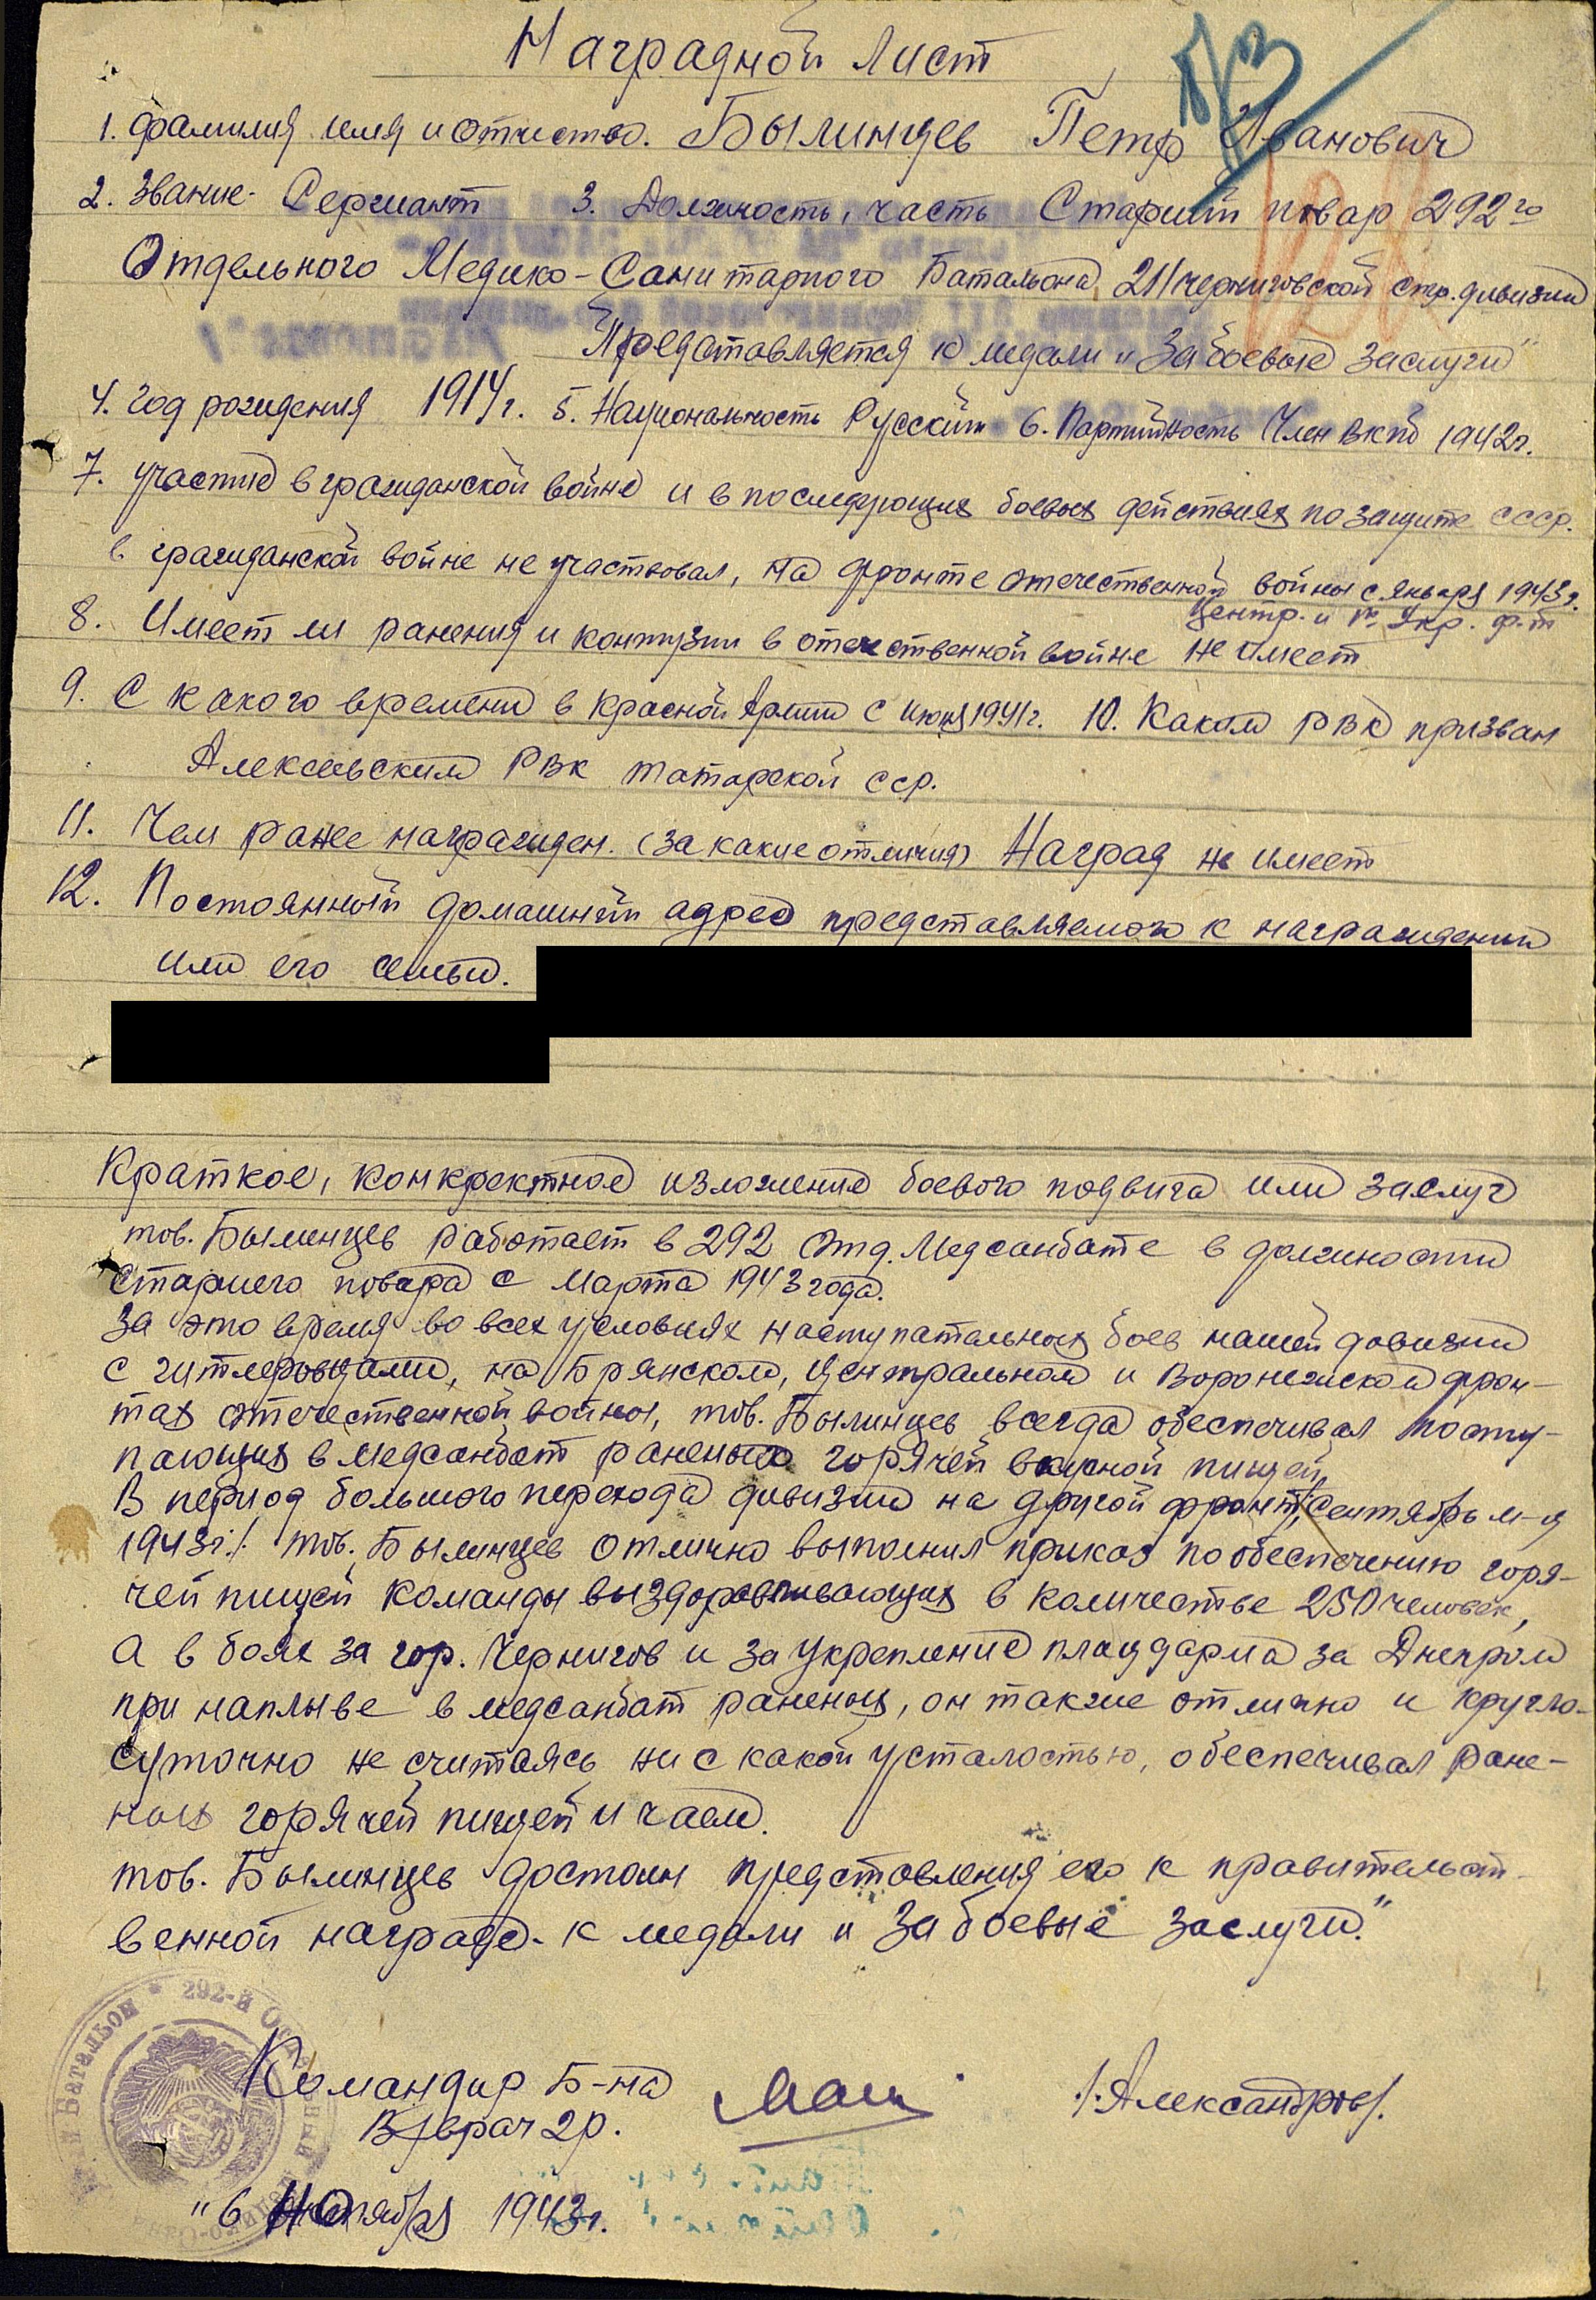 Наградной лист
1. фамилия имя и отчество. Былинцев Петр Иванович
2. Звание. Сержант 3. Должность, часть Старший повар 292го
Отдельного Медико-Санитарного Батальона 211 черниговской стр. дивизии
Представляется к медали "За боевые заслуги"
4. Год рождения 1914г. 5. Национальность Русский 6. Партийность Член ВКПб 1942г.
7. участие в гражданской войне и в последующих боевых действиях по защите СССР.
в гражданской войне не участвовал, на фронте отечественной войны с января 1943г.
Центр. и 1й Укр. ф-т
8. Имеет ли ранения и контузии в отечественной войне не имеет
9. С какого времени в Красной Армии с июня 1941г. 10. Каком РВК призван
Алексеевским РВК татарской сср.
11. Чем ранее награжден. (за какие отличия) Наград не имеет
12. Постоянный домашний адрес представляемого к награждению
или его семьи.
Краткое, конкректное изложение боевого подвига или заслуг
тов. Былинцев работает в 292 отд. Медсанбате в должности
старшего повара с марта 1943 года.
За это время во всех условиях наступательных боев нашей дивизии
с гитлеровцами, на Брянском, Центральном и Воронежском фрон-
тах отечественной войны, тов. Былинцев всегда обеспечивал посту-
пающих в медсанбат раненых горячей вкусной пищей.
В период большого перехода дивизии на другой фронт /Сентябрь м-ц
1943г./. тов. Былинцев отлично выполнил приказ по обеспечению горя-
чей пищей команды выздоравливающих в количестве 250 человек,
а в боях за гор. Чернигов и за укрепление плацдарма за Днепром
при наплыве в медсанбат раненых, он также отлично и кругло-
суточно не считаясь ни с какой усталостью, обеспечивал ране-
ных горячей пищей и чаем.
тов. Былинцев достоин представления его к правительст-
венной награде - к медали "За боевые заслуги."
Командир Б-на
В/врач 2р. /.Александров/.
"6 ноября 1943г.
292-й Отдельный
Батальон